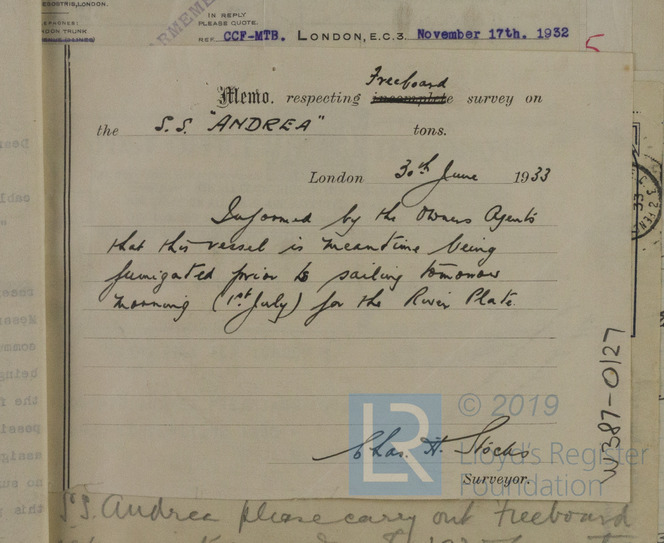 EGOSTRIS, LONDON.
EPHONES:
NDON TRUNK
IN REPLY
PLEASE QUOTE.
REF. CCF-MTB. LONDON, E.C.3. November 17th. 1932
5
Memo. respecting Freeboard survey on
the S.S. "ANDREA" tons.
London 30th June 1933
Informed by the Owners Agents
that this vessel is meantime being
fumigated prior to sailing tomorrow
morning (1st July) for the River Plate.
Chas. H. Stocks
Surveyor.
W387-0127
LR
© 2019
Lloyd's Register
Foundation
S.S. Andrea please carry out freeboard